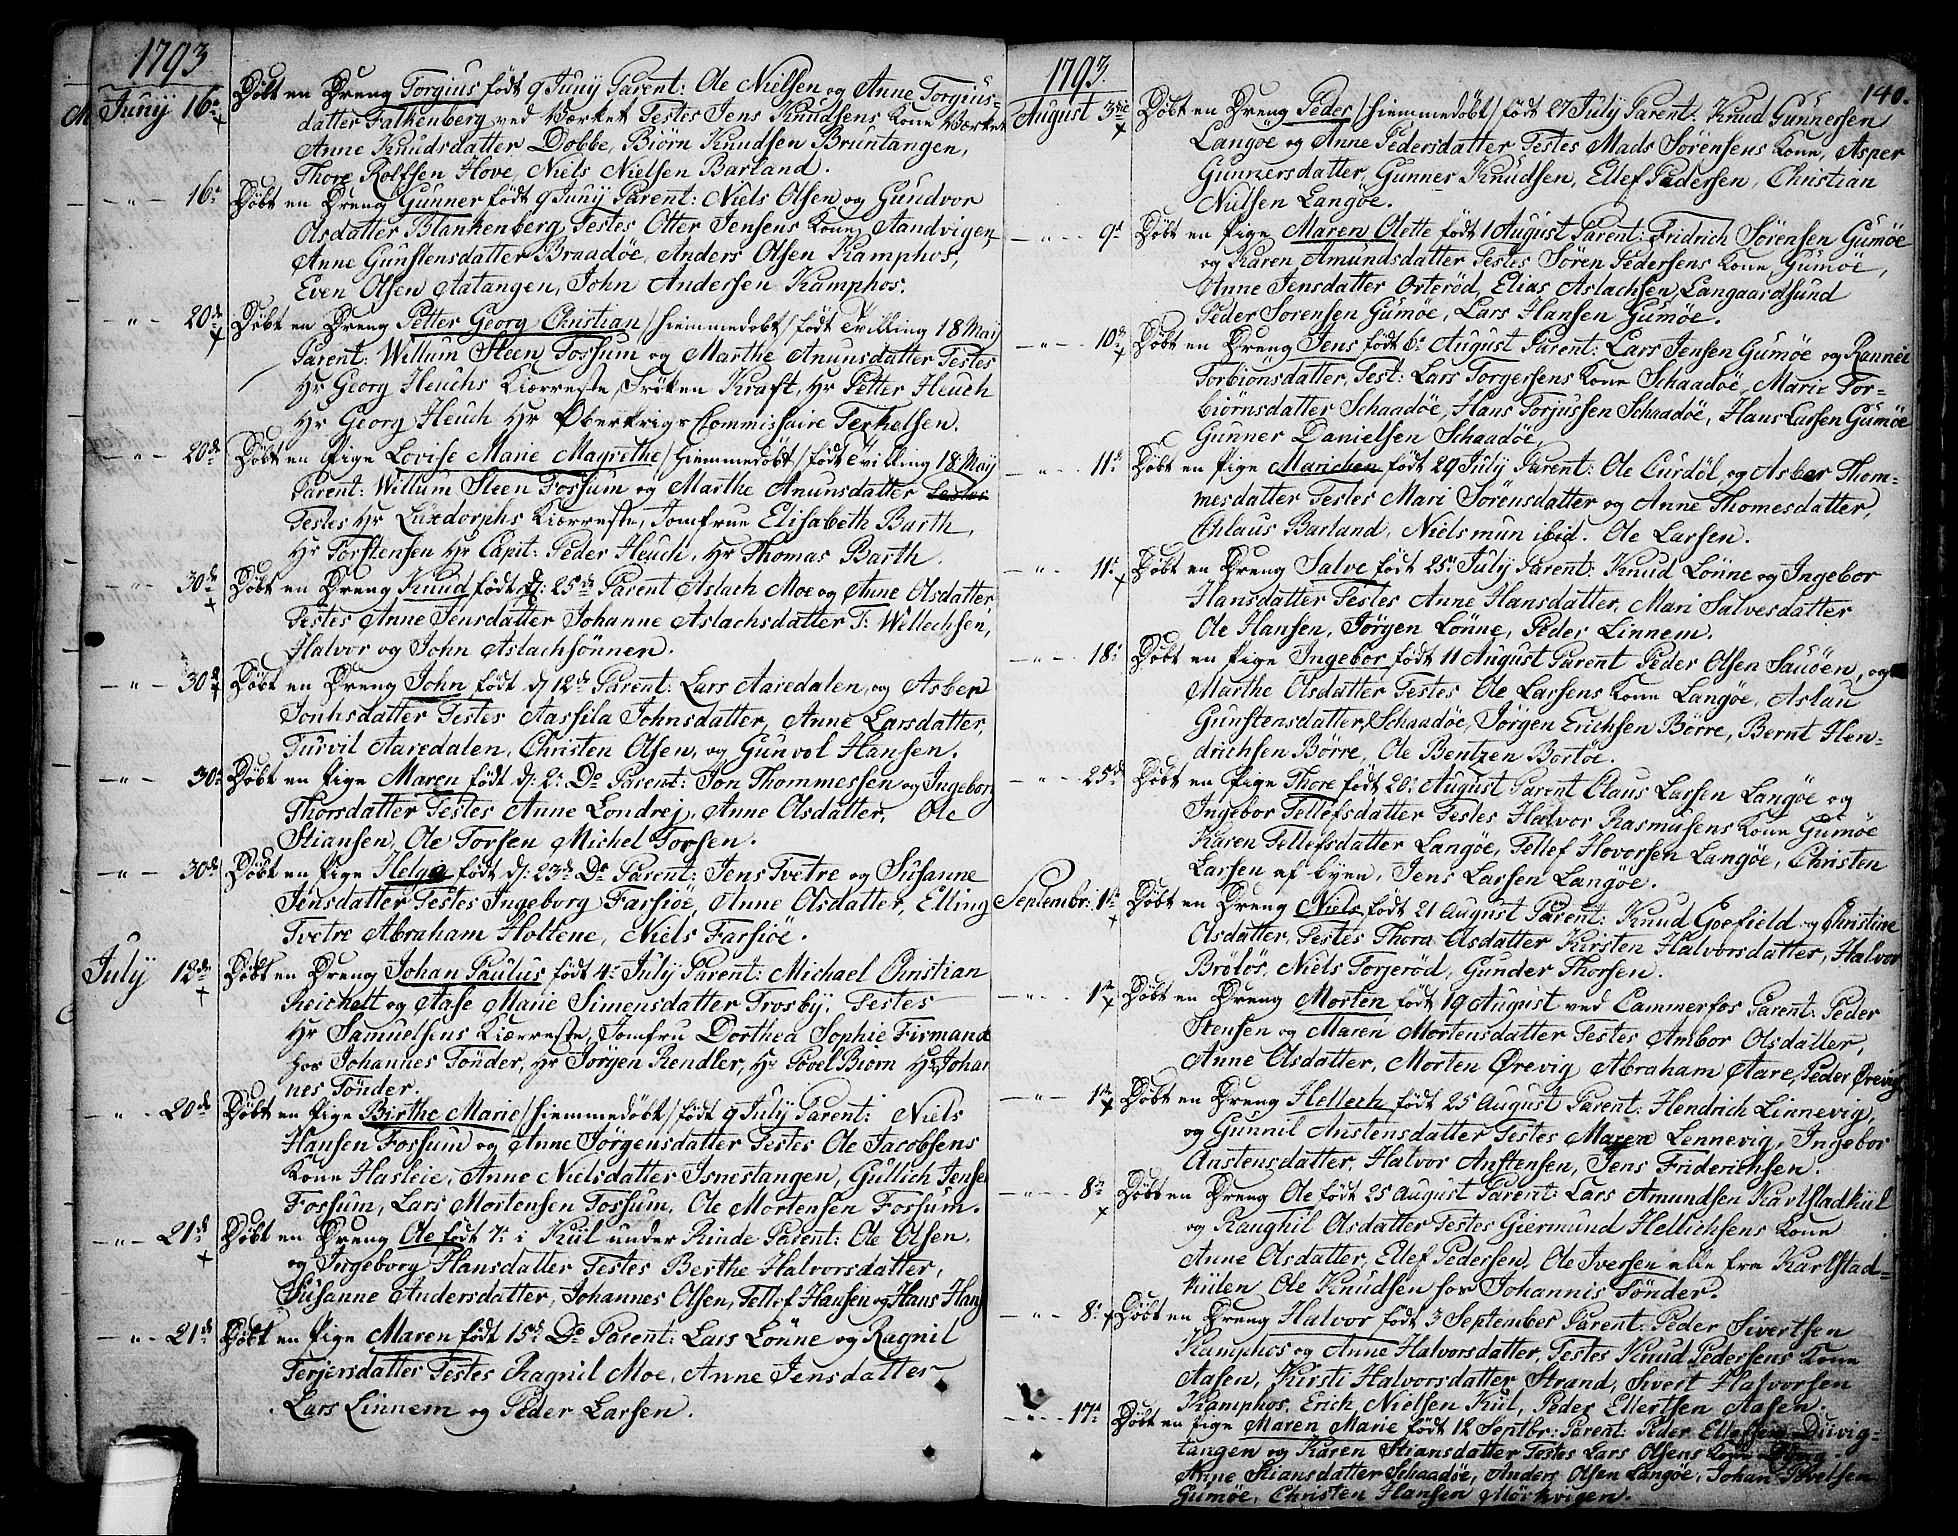 1793
Juny 16de Døbt en Dreng Torgius født 9 Juny Parent: Ole Nielsen og Anne Torgius-
datter Falkenberg ved Værket Testes Jens Knudsens Kone Værket
Anne Knudsdatter Dobbe, Biørn Knudsen Bruntangen,
Thore Rolfsen Hove, Niels Nielsen Barland.
-"- 16de Døbt en Dreng Gunner født 9 Juny Parent: Niels Olsen og Gundvor
Olsdatter Blankenberg, Testes Otter Jensens Kone, Aandvigen
Anne Gunstensdatter Braadøe, Anders Olsen Kamphos,
Even Olsen Aatangen, John Andersen Kamphos.
-"- 20de Døbt en Dreng Petter Georg Christian /hiemmedøbt/ født Tvilling 18 May
Parent: Willum Steen Fossum og Marthe Anunsdatter Testes
Hr Georg Heuchs Kiærreste, Frøken Kraft, Hr Petter Heuch
Hr Georg Heuch Hr Oberkrigs Commissaire Terkelsen.
-"- 20de Døbt en Pige Lovise Marie Magrethe /hiemmedøbt/ født Tvilling 18 May
Parent: Willum Steen Fossum og Marthe Anunsdatter Testes
Testes Hr Luxdorphs Kiærreste, Jomfrue Elisabeth Barth,
Hr Torstensen Hr Capit: Peder Heuch, Hr Thomas Barth.
-"- 30de Døbt en Dreng Knud født d: 25de Parent Aslach Moe og Anne Olsdatter
Testes Anne Jensdatter Johanne Aslachsdatter T: Wellechsen,
Halvor og John Aslachsønner.
-"- 30de Døbt en Dreng John født d: 12de Parent: Lars Aaredalen, og Asber
Jonhsdatter Testes Aassila Johnsdatter, Anne Larsdatter,
Turvil Aaredalen, Christen Olsen, og Gunvol Hansen.
-"- 30de Døbt en Pige Maren født d: 2de Do Parent: Jon Thommessen og Ingeborg
Thorsdatter Testes Anne Londrej, Anne Olsdatter, Ole
Stiansen, Ole Torsen Michel Torsen.
-"- 30de Døbt en Pige Helga født d: 23de Do Parent: Jens Tvetre og Susanne
Jensdatter Testes Ingeborg Farsiøe, Anne Olsdatter, Elling
Tvetre Abraham Holtene, Niels Farsiøe.
July 12de Døbt en Dreng Johan Paulus født 4de July Parent: Michael Christian
Reichelt og Aase Marie Simensdatter Trosby, Testes
Hr Samuelsens Kiærreste, Jomfru Dorthea Sophie Firmand
hos Johannes Tønder, Hr Jørgen Rendler, Hr Povel Biørn Hr Johan
nes Tønder.
-"- 20de Døbt en Pige Birthe Marie /hiemmedøbt/ født 9 July Parent: Niels
Hansen Fossum og Anne Jørgensdatter Testes Ole Jacobsens
Kone Hasleie, Anne Nielsdatter Isnestangen, Gullich Jensen
Fossum, Lars Mortensen Fossum, Ole Mortensen Fossum.
-"- 21de Døbt en Dreng Ole født 7de i Kiil under Rinde Parent: Ole Olsen,
og Ingeborg Hansdatter Testes Berthe Halvorsdatter,
Susanne Andersdatter, Johannes Olsen, Tellef Hansen og Hans Hans
-"- 21de Døbt en Pige Maren født 15de Do Parent: Lars Lønne og Ragnil
Terjersdatter Testes Ragnil Moe, Anne Jensdatter
Lars Linnem og Peder Larsen.
1793.
140.
August 3die Døbt en Dreng Peder /hiemmedøbt/ født 27 July Parent: Knud Gunnersen
Langøe og Anne Pedersdatter Testes Mads Sørensens Kone, Asper
Gunnersdatter, Gunner Knudsen, Ellef Pedersen, Christian
Nielsen Langøe.
-"- 9de Døbt en Pige Maren Olette født 1 August Parent: Fridrich Sørensen Gumøe
og Karen Amundsdatter Testes Søren Pedersens Kone, Gumøe,
Anne Jensdatter Orterød, Elias Aslachsen, Langaardsund
Peder Sorensen Gumøe, Lars Hansen Gumøe.
-"- 10de Døbt en Dreng Jens født 6te August Parent: Lars Jensen Gumøe og Rannei
Torbiønsdatter, Test: Lars Torgersens Kone Schaadøe, Marie Tor-
biørnsdatter Schaadøe, Hans Torjussen Schaadøe, Hans Larsen Gumøe
Gunner Danielsen Schaadøe,
-"- 11de Døbt en Pige Marichen født 29 July Parent: Ole Eurdøl, og Asber Thom-
mesdatter Testes Mari Sørensdatter og Anne Thomesdatter,
Chlaus Barland, Nielsmun ibid. Ole Larsen.
-"- 11te Døbt en Dreng Salve født 25de July Parent: Knud Lønne og Ingebor
Hansdatter Testes Anne Hansdatter, Mari Salvesdatter
Ole Hansen, Jørgen Lønne, Peder Linnem.
-"- 18de Døbt en Pige Ingebor født 11 August Parent Peder Olsen Sauøen, og
Marthe Olsdatter Testes Ole Larsens Kone Langøe, Aslau
Gunstensdatter, Schaadøe, Jørgen Erichsen Børre, Bernt Hen-
drichsen Børre, Ole Bentzen Bortøe.
-"- 25de Døbt en Pige Thore født 20de August Parent Claus Larsen Langøe og
Ingebor Tellefsdatter Testes Halvor Rasmusens Kone Gumøe
Karen Tellefsdatter Langøe, Tellef Hovorsen Langøe, Christen
Larsen af byen, Jens Larsen Langøe.
Septembr: 1te Døbt en Dreng Niels født 21 August Parent: Knud Goefield og Christine
Olsdatter, Testes Thora Olsdatter Kirsten Halvorsdatter, Halvor
Brøløs, Niels Torjerød, Gunder Thorsen.
-"- 1te Døbt en Dreng Morten født 19 August ved Cammerfos Parent: Peder
Stensen og Maren Mortensdatter Testes Ambor Olsdatter,
Anne Olsdatter, Morten Ørevig Abraham Aare, Peder Ørevig
-"- 1te Døbt en Dreng Hellech født 25 August Parent: Hendrich Linnevig,
og Gunnil Anstensdatter Testes Maren Lennevig, Ingebor
Anstensdatter, Halvor Anstensen, Jens Friderichsen.
-"- 8de Døbt en Dreng Ole født 25 August Parent: Lars Amundsen Karlstadkiil
og Raughil Olsdatter Testes Giermund Hellichsens Kone
Anne Olsdatter, Ellef Pedersen, Ole Iversen alle fra Karlstad-
kiilen Ole Knudsen for Johannis Tønder.
-"- 8de Døbt en Dreng Halvor født 3 September Parent: Peder Sivertsen
Kamphos og Anne Halvorsdatter, Testes Knud Pedersens Kone
Aasen, Kirsti Halvorsdatter Strand, Sivert Halvorsen
Kamphos, Erich Nielsen Kiil, Peder Ellertsen Aasen.
-"- 17de Døbt en Pige Maren Marie født 12 Septbr: Parent: Peder Ellefsen Diivig-
tangen og Karen Stiansdatter Testes Lars Olsens Kone
Anne Stiansdatter Schaadøe, Anders Olsen Langøe, Johan Povelsen
Gumøe, Christen Hansen Mørkvigen.